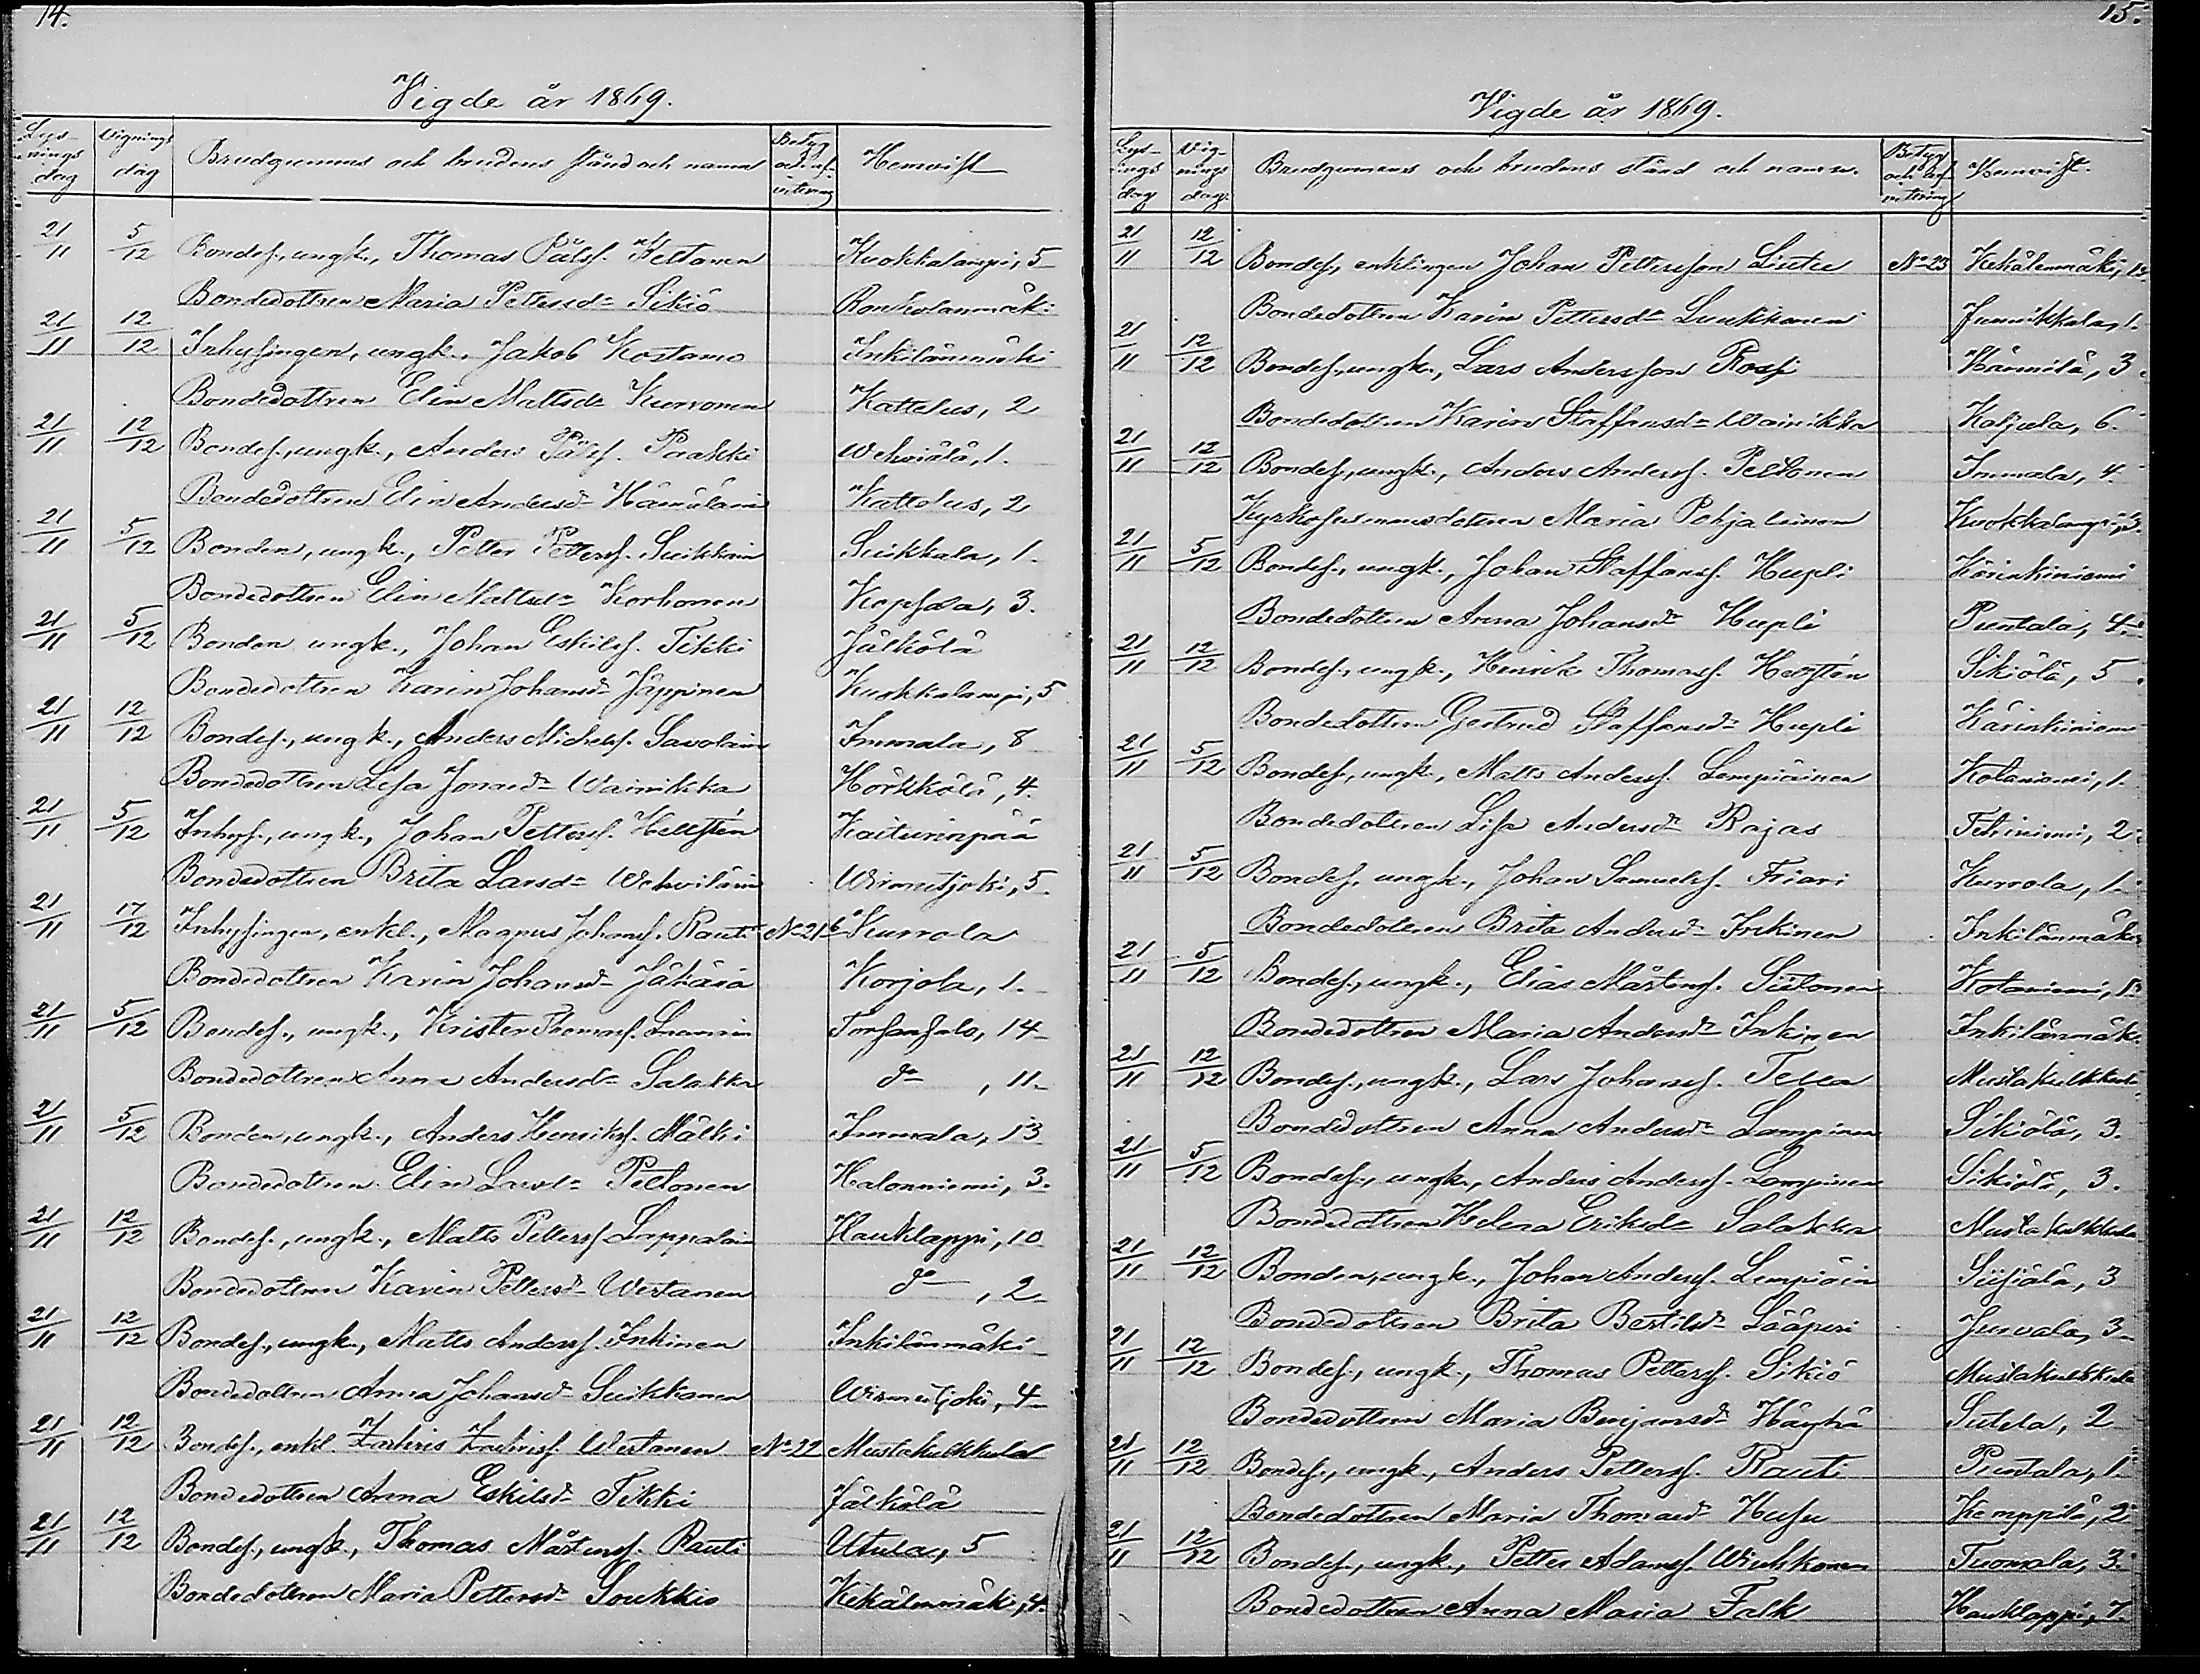 14.
Vigde år 1869.
Lysnings dag Vignings dag Brudgummens och brudens stånd och namn Betyg och afvittring Hemvist
21/11 5/12 Bondes., ungk., Thomas Pålss. Keltanen Kuokkalampi, 5
Bondedottren Maria Pettersdr Sikiö Ronkolanmäki
21/11 12/12 Inhysingen, ungk., Jakob Kostamo Inkilänmäki
Bondedottren Elin Mattsdr Kurvonen Kattelus, 2
21/11 12/12 Bondes., ungk., Anders Pålss. Paakki Wehviälä, 1.
Bondedottren Elin Andersdr Hämäläin Kattelus, 2
21/11 5/12 Bonden, ungk., Petter Petterss. Suikkain Suikkala, 1.
Bondedottren Elin Mattsdr Korhonen Kopsala, 3.
21/11 5/12 Bonden ungk., Johan Eskilss. Tikki Jälkölä
Bondedottren Karin Johansdr Jäppinen Kuokkalampi, 5
21/11 12/12 Bondes., ungk., Anders Michelss. Savolain Immala, 8
Bondedottren Lisa Jonasdr Wainikka Hörkkölä, 4.
21/11 5/12 Inhys., ungk., Johan Petterss. Hellstén Kaiturinpää
Bondedottren Brita Larsdr Wehviläin Wirmutjoki, 5.
21/11 17/12 Inhysingen, enkl., Magnus Johanss. Rauti No 21 Kurrola
Bondedottren Karin Johansdr Jäkärä Korjola, 1.
21/11 5/12 Bondes., ungk., Krister Thomass. Torsansalo, 14
Bondedottren Anna Andersdr Salakka do, 11.
21/11 5/12 Bonden, ungk., Anders Henrikss. Mälki Immala, 13
Bondedottren Elin Larsdr Peltonen Halonniemi, 3.
21/11 12/12 Bondes., ungk., Matts Petterss. Lappalain Hauklappi, 10
Bondedottren Karin Pettersdr Westanen do, 2
21/11 12/12 Bondes., ungk., Matts Anderss. Inkinen Inkilänmäki
Bondedottren Anna Johansdr Suikkanen Wirmutjoki, 4
21/11 12/12 Bondes., enkl. Zachris Zachriss. Westanen No 22 Mustakulkkula
Bondedottren Anna Eskilsdr Tikki Jälkölä
21/11 12/12 Bondes., ungk., Thomas Mårtenss. Rauti Utula, 5
Bondedottren Maria Pettersdr Soukkio Kekälenmäki, 4.
15.
Vigde år 1869.
Lysnings dag Vignings dag. Brudgummens och brudens stånd och namn. Betyg och afvittring Hemvist.
21/11 12/12 Bondes., enklingen Johan Pettersson Liutu No 23 Kekälenmäki, 12
Bondedottren Karin Pettersdr Luukkonen Junnikkala, 1.
21/11 12/12 Bondes., ungk., Lars Andersson Rossi Kärmilä, 3.
Bondedottren Karin Staffansdr Wainikka Kaljula, 6.
21/11 12/12 Bondes., ungk., Anders Anderss. Peltonen Immala, 4.
Maria Pohjalainen Kuokkalampi
21/11 5/12 Bondes., ungk., Johan Staffanss. Hupli Kärinkiniemi
Bondedottren Anna Johansdr Hupli Puntala, 4.
21/11 12/12 Bondes., ungk., Henrik Thomass. Hellstén Sikiölä, 5.
Bondedottren Gertrud Staffansdr Hupli Kärinkiniemi
21/11 5/12 Bondes., ungk., Matts Anderss. Lempiäinen Kotaniemi, 1.
Bondedottren Lisa Andersdr Rajas Tetriniemi, 2.
21/11 5/12 Bondes., ungk., Johan Samuelss. Friari Kurrola, 1.
Bondedottren Brita Andersdr Inkinen Inkilänmäki
21/11 5/12 Bondes., ungk., Elias Mårtenss. Siitonen Kotaniemi, 1.
Bondedottren Maria Andersdr Inkinen Inkilänmäk.
21/11 12/12 Bondes., ungk., Lars Johanss. Tella Mustakulkkula
Bondedottren Anna Andersdr Lampinen Sikiölä, 3.
21/11 5/12 Bondes., ungk., Anders Anderss. Lampinen Sikiölä, 3.
Bondedottren Helena Eriksdr Salakka Mustakulkkula
21/11 12/12 Bonden, ungk., Johan Anderss. Lempiäin Siisiälä, 3
Bondedottren Brita Bertilsdr Lääperi Jurvala, 3
21/11 12/12 Bondes., ungk., Thomas Petterss. Sikiö Mustakulkkula
Bondedottren Maria Benjamsdr Häyhä Sutela, 2
21/11 12/12 Bondes., ungk., Anders Petterss. Rauti Puntala, 1.
Bondedottren Maria Thomasdr Husu Kemppilä, 2.
21/11 12/12 Bondes., ungk., Petter Adamss. Wiukkonen Tuomala, 3.
Bondedottren Anna Maria Falk Hauklappi, 7.